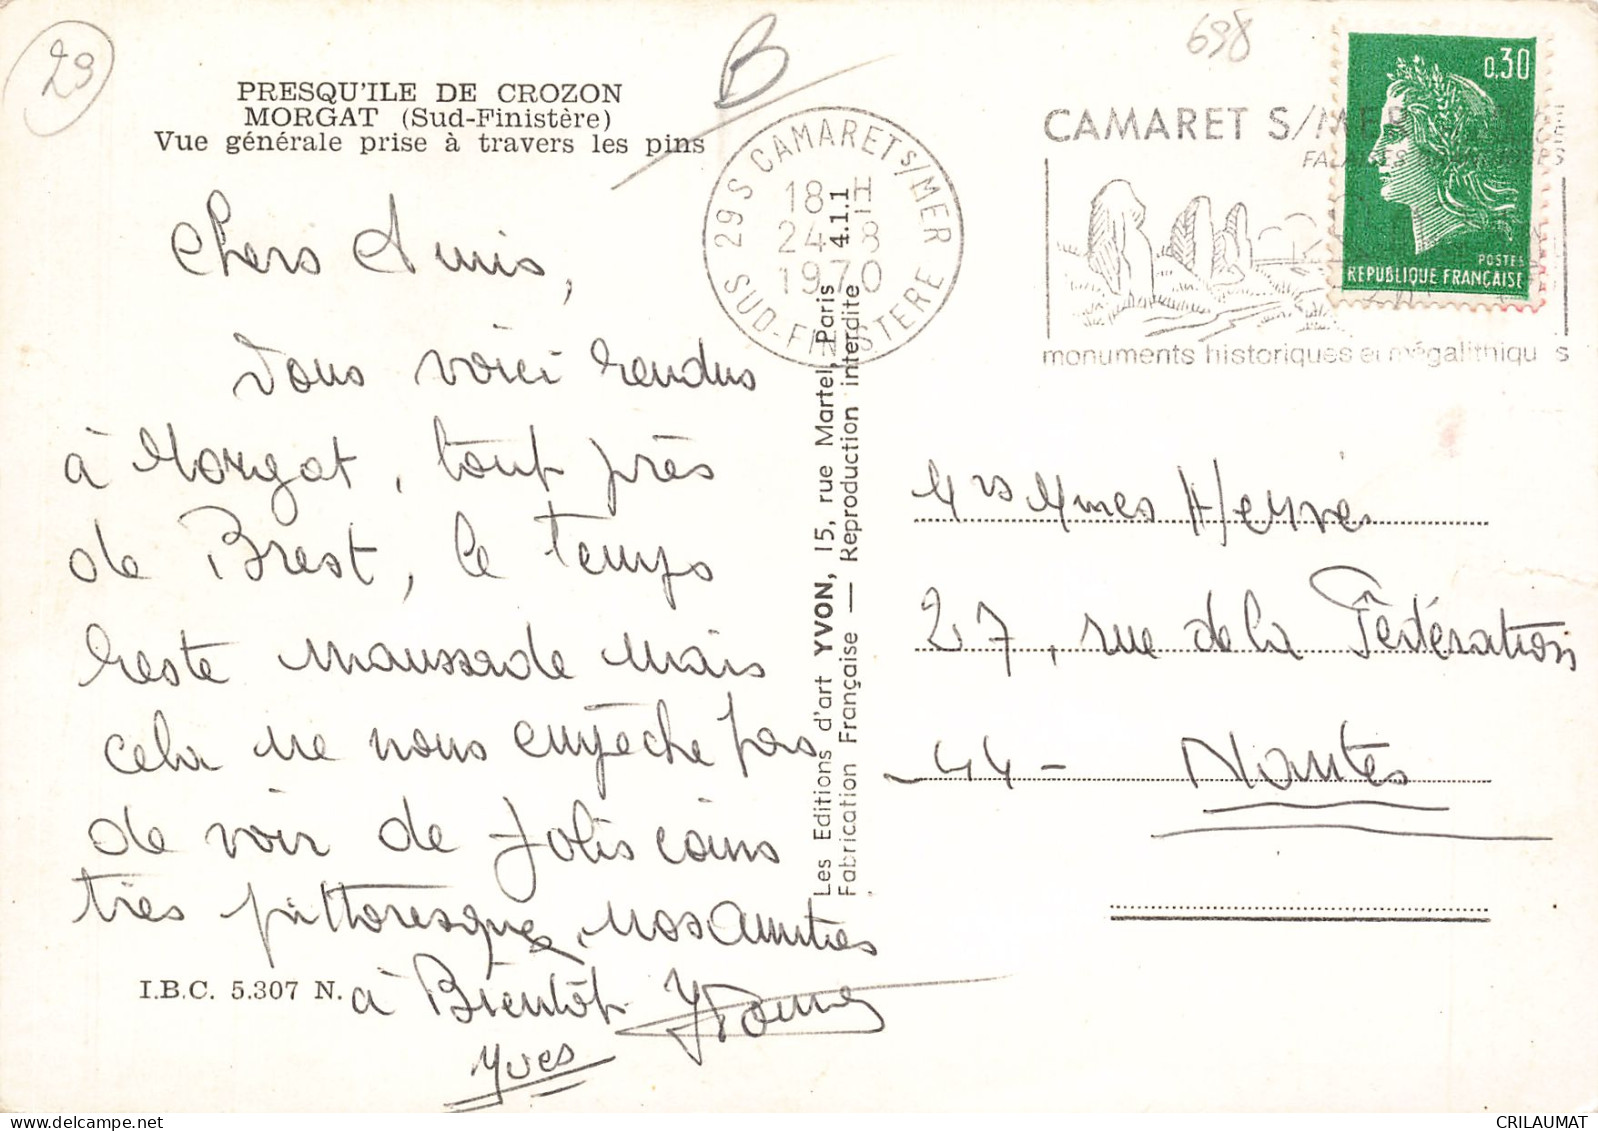 29
PRESQU'ILE DE CROZON
MORGAT (Sud-Finistère)
Vue générale prise à travers les pins
B
698
29 S CAMARET S/MER
18 H
24-8
1970
SUD-FINISTERE
CAMARET S/MER
monuments historiques et mégalithiques
0,30
POSTES
REPUBLIQUE FRANÇAISE
Chers Amis,
Nous voici rendus
à Morgat, tout près
de Brest, le temps
reste maussade mais
cela ne nous empêche pas
de voir de jolis coins
très pittoresque, nos Amitiés
à Bientôt
Yves
I.B.C. 5.307 N.
Les Editions d'art YVON, 15, rue Martel, Paris 4.1.1
Fabrication Française — Reproduction interdite
Mrs Mmes Hervé
27, rue de la Fédération
- 44 - Nantes
CRILAUMAT